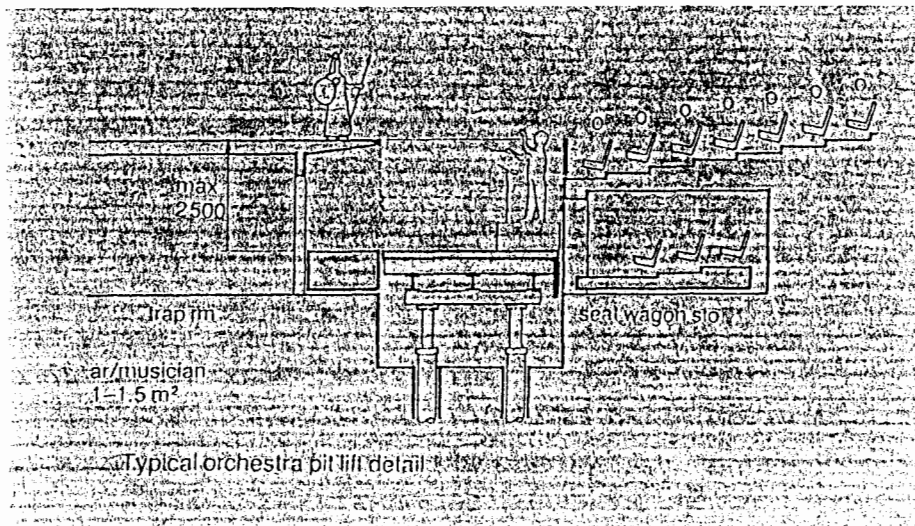 max
2500
trap rm
seat wagon sto
ar/musician
1–1.5 m²
Typical orchestra pit lift detail